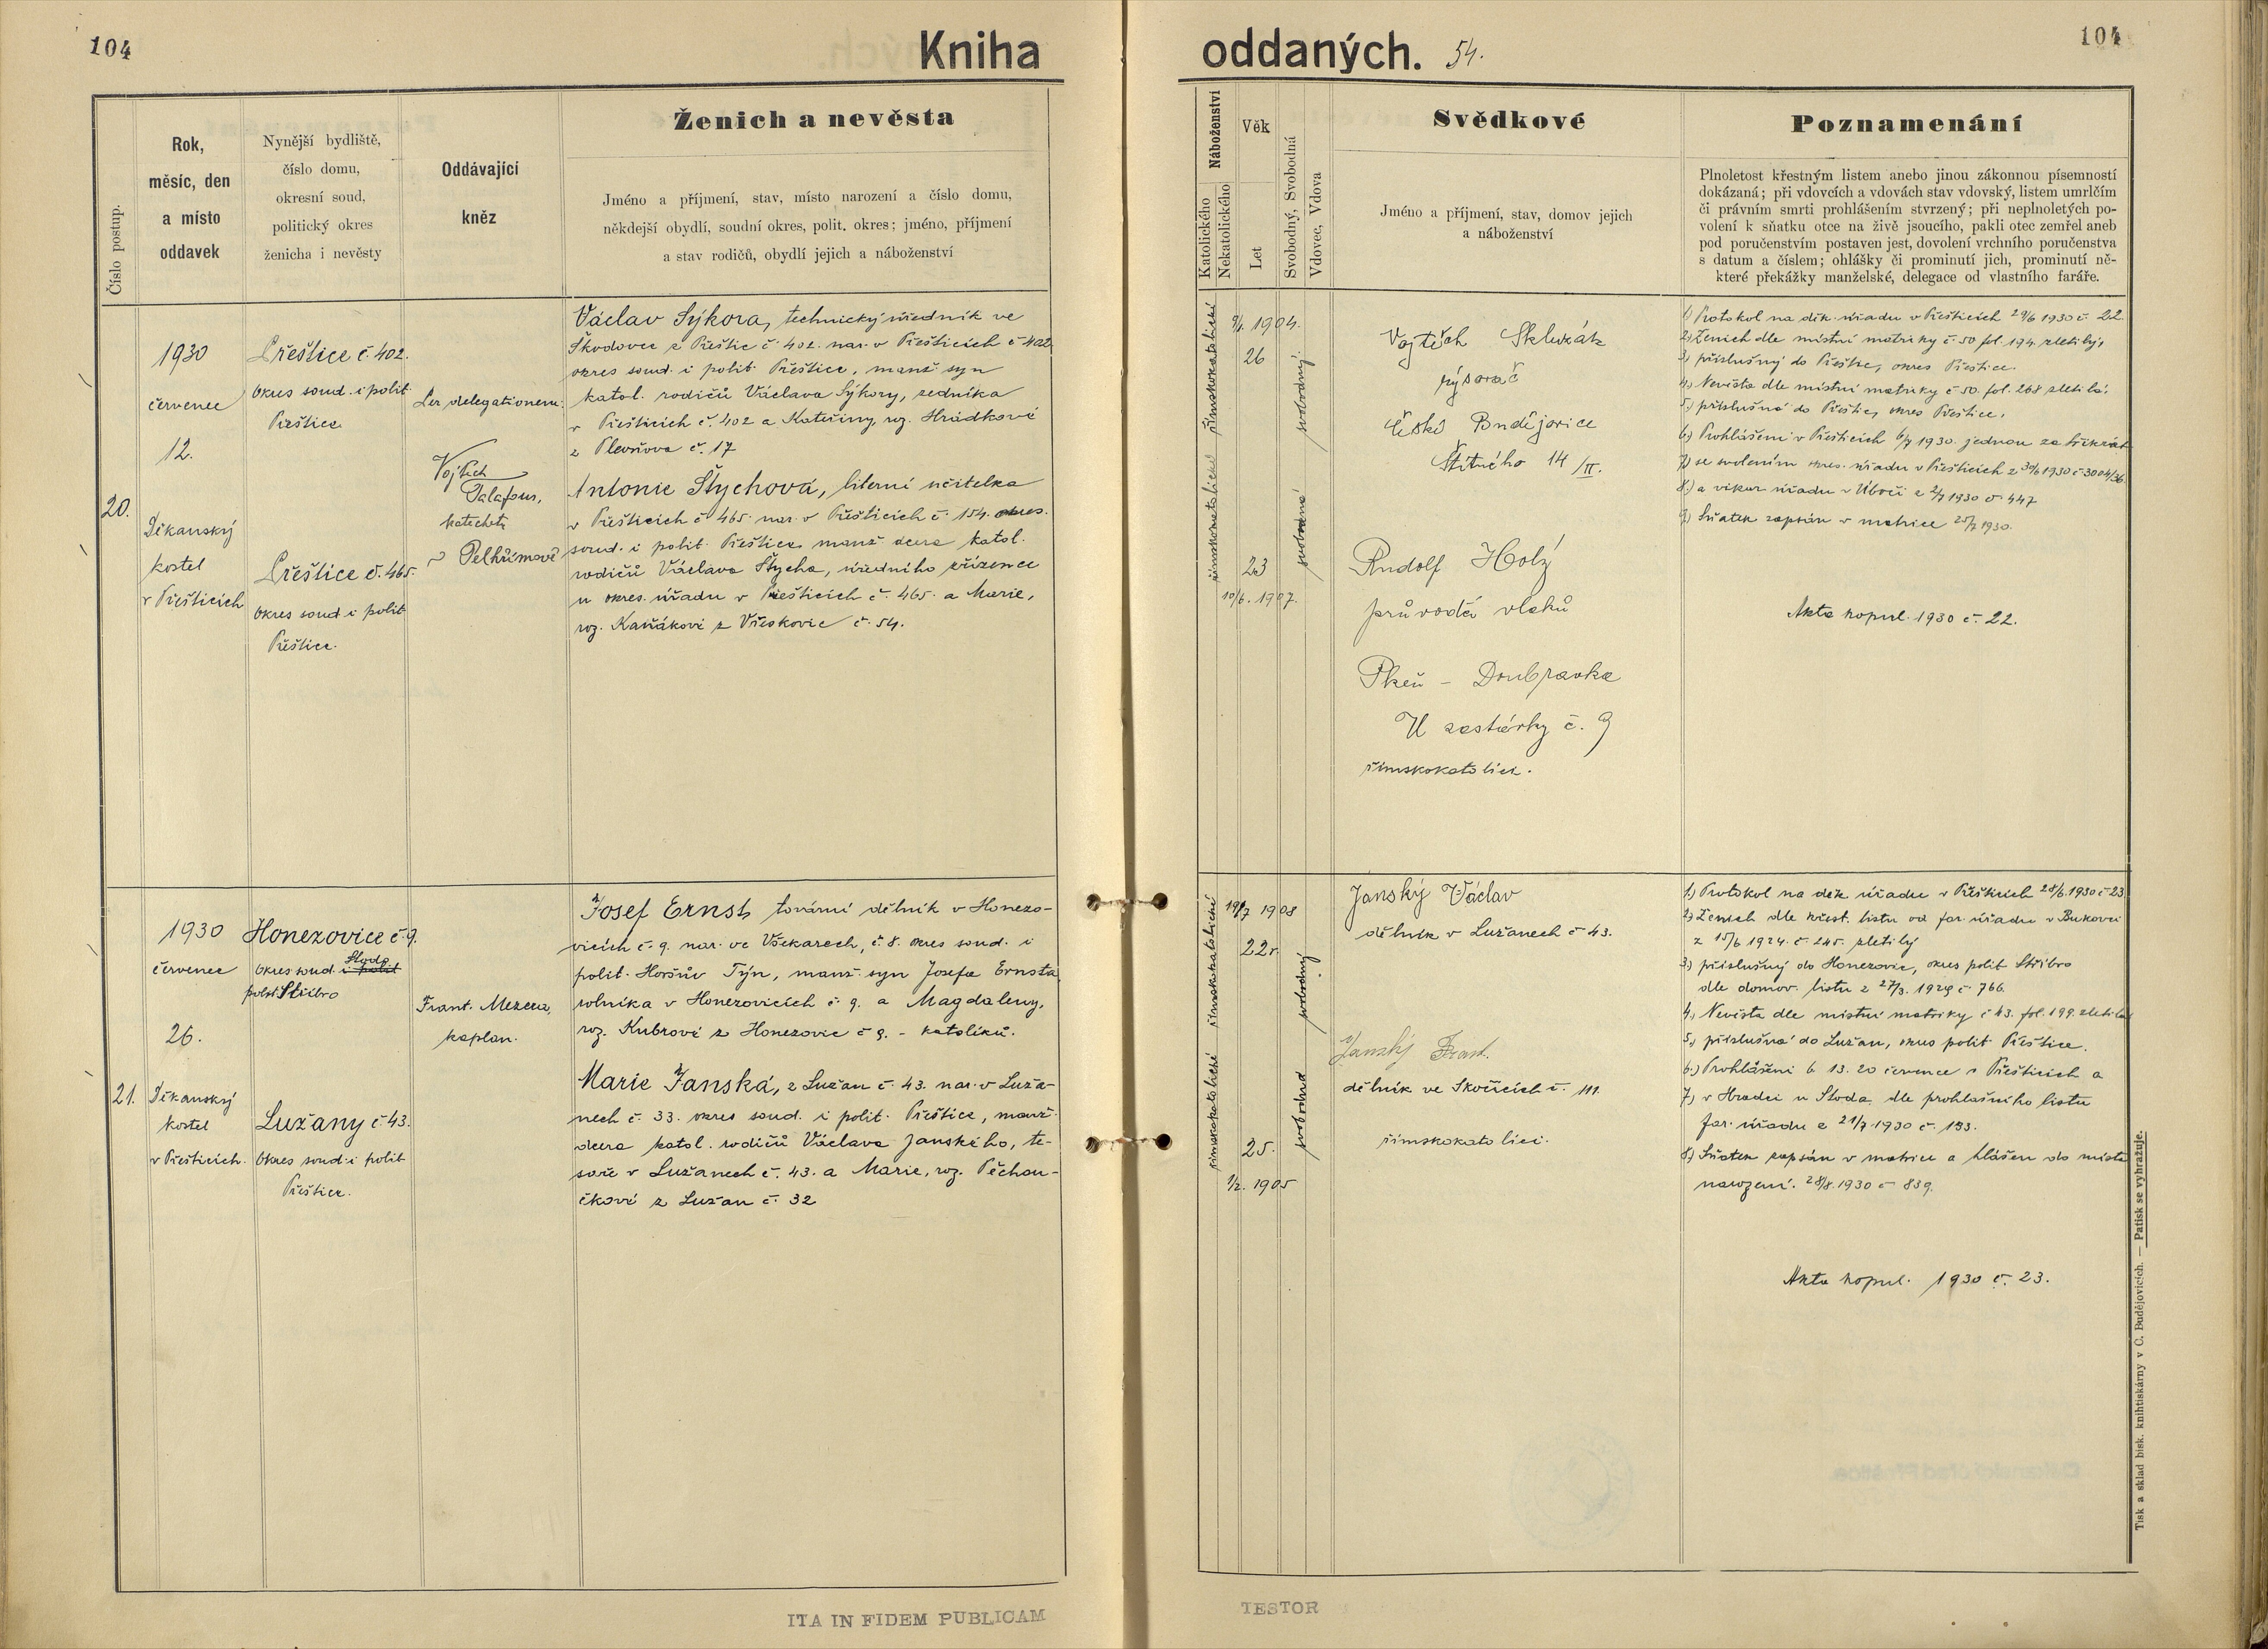 104
Kniha
oddaných. 54.
104
Číslo postup.
Rok,
měsíc, den
a místo
oddavek
Nynější bydliště,
číslo domu,
okresní soud,
politický okres
ženicha i nevěsty
Oddávající
kněz
Ženich a nevěsta
Jméno a příjmení, stav, místo narození a číslo domu,
někdejší obydlí, soudní okres, polit. okres; jméno, příjmení
a stav rodičů, obydlí jejich a náboženství
Náboženství
Katolického
Nekatolického
Věk
Let
Svobodný, Svobodná
Vdovec, Vdova
Svědkové
Jméno a příjmení, stav, domov jejich
a náboženství
Poznamenání
Plnoletost křestným listem anebo jinou zákonnou písemností
dokázaná; při vdovcích a vdovách stav vdovský, listem umrlčím
či právním smrti prohlášením stvrzený; při neplnoletých po-
volení k sňatku otce na živě jsoucího, pakli otec zemřel aneb
pod poručenstvím postaven jest, dovolení vrchního poručenstva
s datum a číslem; ohlášky či prominutí jich, prominutí ně-
které překážky manželské, delegace od vlastního faráře.
20.
1930
červenec
12.
Děkanský
kostel
v Přešticích
Přeštice č. 402.
Okres soud. i polit.
Přeštice
Přeštice č. 465.
Okres soud. i polit
Přeštice.
Per delegationem:
Vojtěch
katecheta
v Pelhřimově
Václav Sýkora, technický úředník ve
Škodovce z Přeštic č. 402. nar. v Přešticích č 402
okres soud. i polit. Přeštice, manž. syn
katol. rodičů Václava Sýkory, zedníka
v Přešticích č. 402 a Kateřiny, roz. Hrádkové
z č. 17
Antonie Štychová, literní učitelka
v Přešticích č 465. nar. v Přešticích č. 154. okres.
soud. i polit. Přeštice manž. dcera katol.
rodičů Václava Štycha, úředního zřízence
u okres. úřadu v Přešticích č. 465. a Marie,
roz. Kaňákové z Vřeskovic č. 54.
římskokatolické
římskokatolické
9/1. 1904.
26
23
10/6. 1907.
svobodný
svobodná
Vojtěch
rýsovač
České Budějovice
Štítného 14/II.
Rudolf Holý
průvodčí vlaků
Plzeň - Doubravka
U zastávky č. 9
římskokatolíci.
1) Protokol na děk. úřadu v Přešticích 29/6 1930 č. 22.
2) Ženich dle místní matriky č. 50 fol. 194. zletilý,
3) příslušný do Přeštic, okres Přeštice.
4) Nevěsta dle místní matriky č. 50. fol. 268 zletilá.
5) příslušná do Přeštic, okres Přeštice.
6) Prohlášeni v Přešticích 6/7 1930. jednou za třikrát
7) se svolením okres. úřadu v Přešticích z 30/6 1930 č 3004/36.
8) a vikar. úřadu v Úboči z 2/7 1930 č. 447
9) Sňatek zapsán v matrice 25/7 1930.
Akta kopul. 1930 č. 22.
21.
1930
červenec
26.
Děkanský
kostel
v Přešticích.
Honezovice č. 9.
Okres soud. i polit Stodo
polit. Stříbro
Lužany č. 43.
Okres soud. i polit
Přeštice.
Frant. Mezera,
kaplan.
Josef Ernst, tovární dělník v Honezo-
vicích č. 9. nar. ve Všekarech, č. 8. okres soud. i
polit. Horšův Týn, manž. syn Josefa Ernsta
rolníka v Honezovicích č 9. a Magdaleny,
roz. Kubrové z Honezovic č 9. - katolíků.
Marie Janská, z Lužan č. 43. nar. v Luža-
nech č. 33. okres soud. i polit. Přeštice, manž.
dcera katol. rodičů Václava Janského, te-
saře v Lužanech č. 43. a Marie, roz. Pěchou-
čkové z Lužan č. 32
římskokatolické
římskokatolické
19/7 1908
22 r.
25.
1/2. 1905
svobodný
svobodná
Janský Václav
dělník v Lužanech č 43.
Janský Frant.
dělník ve Skočicích č. 111.
římskokatolíci.
1) Protokol na děk. úřadu v Přešticích 28/6. 1930 č. 23
2) Ženich dle křest. listu od far. úřadu v Bukovci
z 15/6 1924. č. 245. zletilý
3) příslušný do Honezovic, okres polit Stříbro
dle domov. listu z 27/3. 1929 č. 766.
4) Nevěsta dle místní matriky č 43. fol. 199. zletilá
5) příslušná do Lužan, okres polit Přeštice.
6) Prohlášeni 6. 13. 20 července v Přešticích a
7) v Hradci u Stoda dle prohlašního listu
far. úřadu z 21/7 1930 č. 193.
8) Sňatek zapsán v matrice a hlášen do místa
narození. 28/8. 1930 č 839.
Akta kopul. 1930 č. 23.
ITA IN FIDEM PUBLICAM
TESTOR
Tisk a sklad bisk. knihtiskárny v Č. Budějovicích. — Patisk se vyhražuje.